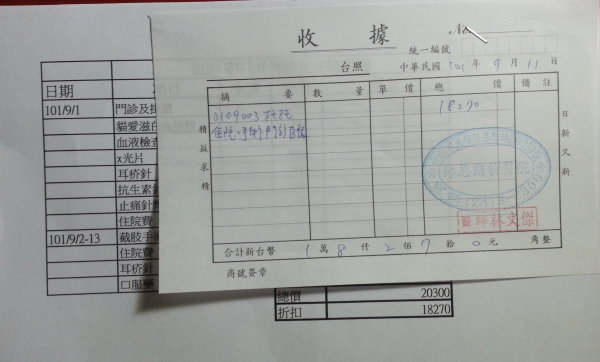 收據
No
統一編號
台照
中華民國 101 年 9 月 11 日
摘要 數量 單價 總價 備註
3109003托托
住院.手術 門診醫院
18270
精益求精
日新又新
醫師林文傑
合計新台幣 1 萬 8 仟 2 佰 7 拾 0 元 角整
商號簽章
日期
101/9/1 門診及掛
貓愛滋白
血液檢查
x光片
耳疥針
抗生素針
止痛針劑
住院費
101/9/2-13 截肢手術
住院費
耳疥針
口服藥
總價 20300
折扣 18270